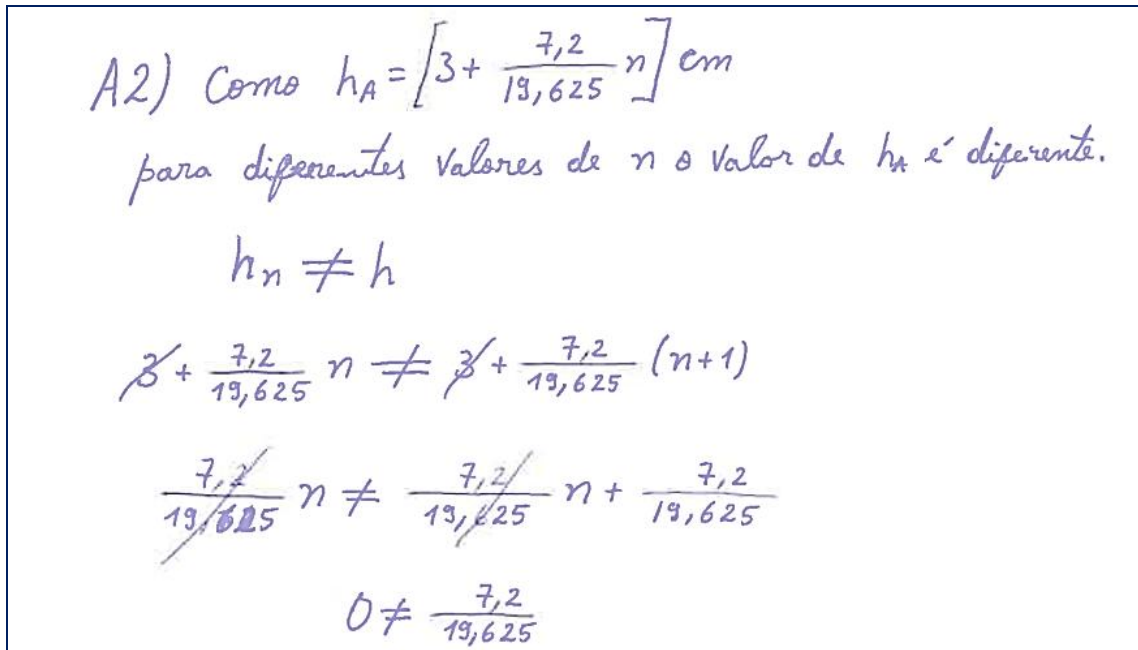 A2) Como hA = [3 + 7,2/19,625 n] cm
para diferentes valores de n o valor de hA é diferente.
hn ≠ h
3 + 7,2/19,625 n ≠ 3 + 7,2/19,625 (n+1)
7,2/19,625 n ≠ 7,2/19,625 n + 7,2/19,625
0 ≠ 7,2/19,625